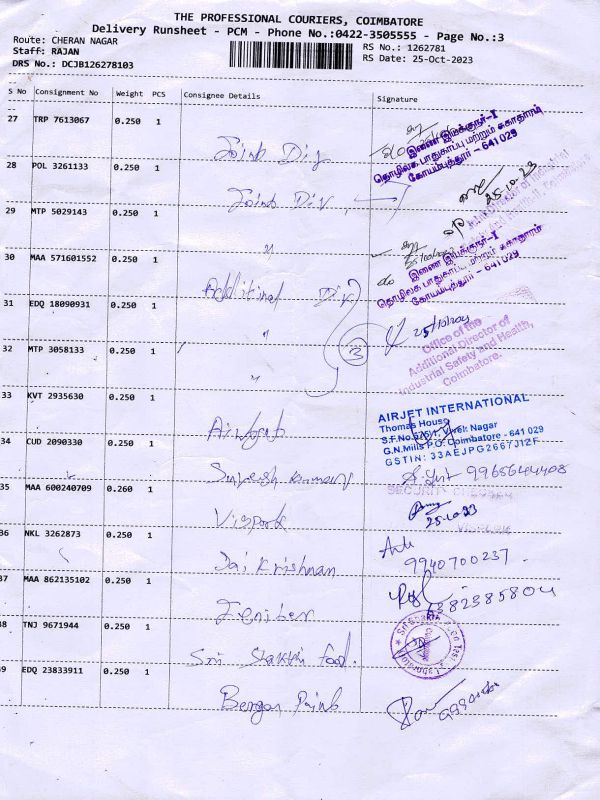 THE PROFESSIONAL COURIERS, COIMBATORE
Delivery Runsheet - PCM - Phone No.:0422-3505555 - Page No.:3
Route: CHERAN NAGAR
RS No.: 1262781
Staff: RAJAN
RS Date: 25-Oct-2023
DRS No.: DCJB126278103
S No Consignment No Weight PCS Consignee Details Signature
27 TRP 7613067 0.250 1
இணை இயக்குநர்-I
தொழிலக பாதுகாப்பு மற்றும் சுகாதாரம்
கோயம்புத்தூர் - 641 029
Joint Div
28 POL 3261133 0.250 1
Joint Div
25.10.23
29 MTP 5029143 0.250 1
"
இணை இயக்குநர்-I
தொழிலக பாதுகாப்பு மற்றும் சுகாதாரம்
கோயம்புத்தூர் - 641 029
30 MAA 571601552 0.250 1
Additinal Div
31 EDQ 18090931 0.250 1
"
25/10/2023
Office of the
Additional Director of
Industrial Safety and Health,
Coimbatore.
32 MTP 3058133 0.250 1
"
3
33 KVT 2935630 0.250 1
AIRJET INTERNATIONAL
Thomas House
S.F.No.575/1, Vivek Nagar
G.N.Mills P.O. Coimbatore - 641 029
GSTIN: 33AEJPG2667J1ZF
34 CUD 2090330 0.250 1
9965644408
35 MAA 600240709 0.260 1
Vispark
25.10.23
36 NKL 3262873 0.250 1
Jai Krishnan
9940700237
37 MAA 862135102 0.250 1
Jeniter
6382385804
38 TNJ 9671944 0.250 1
Sri Shakthi food.
39 EDQ 23833911 0.250 1
Berger Paints